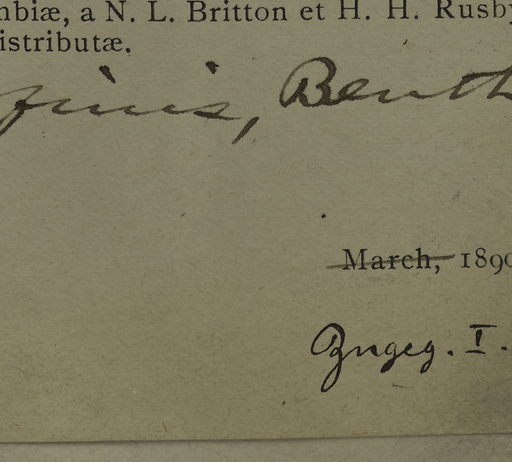 nbiæ, a N. L. Britton et H. H. Rusby
istributæ.
finis, Benth
March, 1890
Zngeg. I.